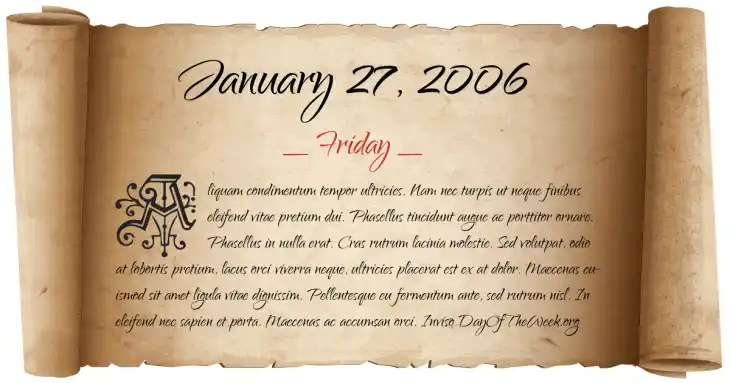 January 27, 2006
_ Friday _
Aliquam condimentum tempor ultricies. Nam nec turpis ut neque finibus
eleifend vitae pretium dui. Phasellus tincidunt augue ac porttitor ornare.
Phasellus in nulla erat. Cras rutrum lacinia molestie. Sed volutpat, odio
at lobortis pretium, lacus orci viverra neque, ultricies placerat est ex at dolor. Maecenas eu-
ismod sit amet ligula vitae dignissim. Pellentesque eu fermentum ante, sed rutrum nisl. In
eleifend nec sapien et porta. Maecenas ac accumsan orci. Inviso DayOfTheWeek.org